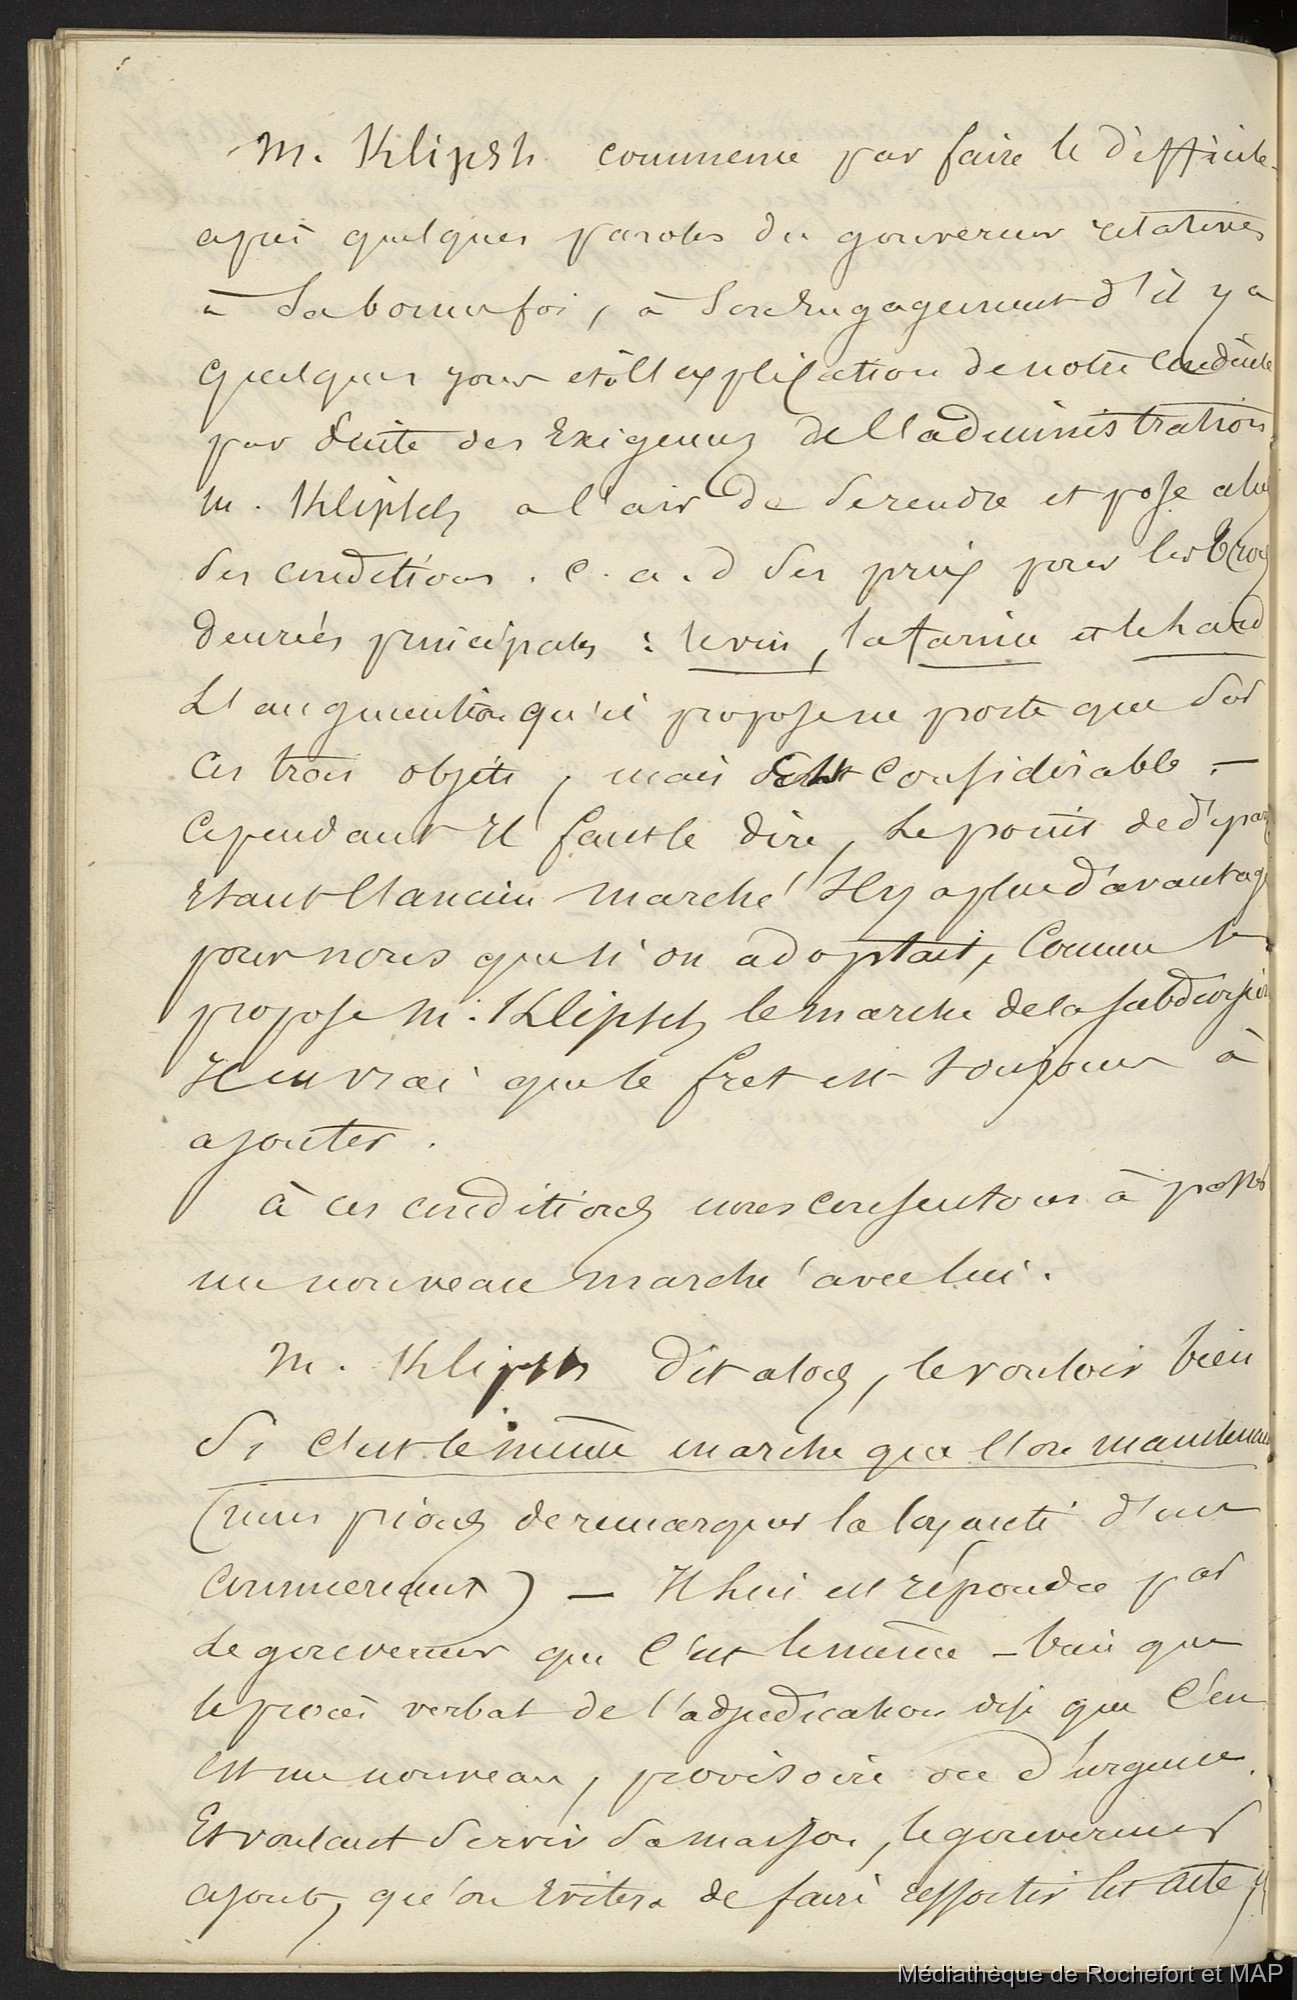 M. Klipsh commence par faire le difficile.
après quelques paroles du gouverneur relatives
à sa bonne foi, à son engagement d'il y a
quelques jours et à l'explication de notre conduite
par suite des exigences de l'administration.
M. Klipsch a l'air de se rendre et pose alors
ses conditions. c. a. d ses prix pour les trois
denrées principales : le vin, la farine et le hard
L'augmentation qu'il propose ne porte que sur
ces trois objets, mais est considérable. —
Cependant il faut le dire, le point de départ
étant l'ancien marché il y a plus d'avantage
pour nous que si on adoptait, comme le
propose M. Klipsch le marché de la subdivision
Il est vrai que le fret est toujours à
ajouter.
à ces conditions nous consentons à passer
un nouveau marché avec lui.
M. Klipsh dit alors, le vouloir bien
si c'est le même marché que l'on maintenait
(nous prions de remarquer la loyauté d'un
commerçant) — Il lui est répondu par
Le gouverneur que c'est le même — bien que
le procès verbal de l'adjudication dise que c'en
est un nouveau, provisoire ou d'urgence.
Et voulant servir sa maison, le gouverneur
ajoute, qu'on évitera de faire ressortir cet acte
Médiathèque de Rochefort et MAP